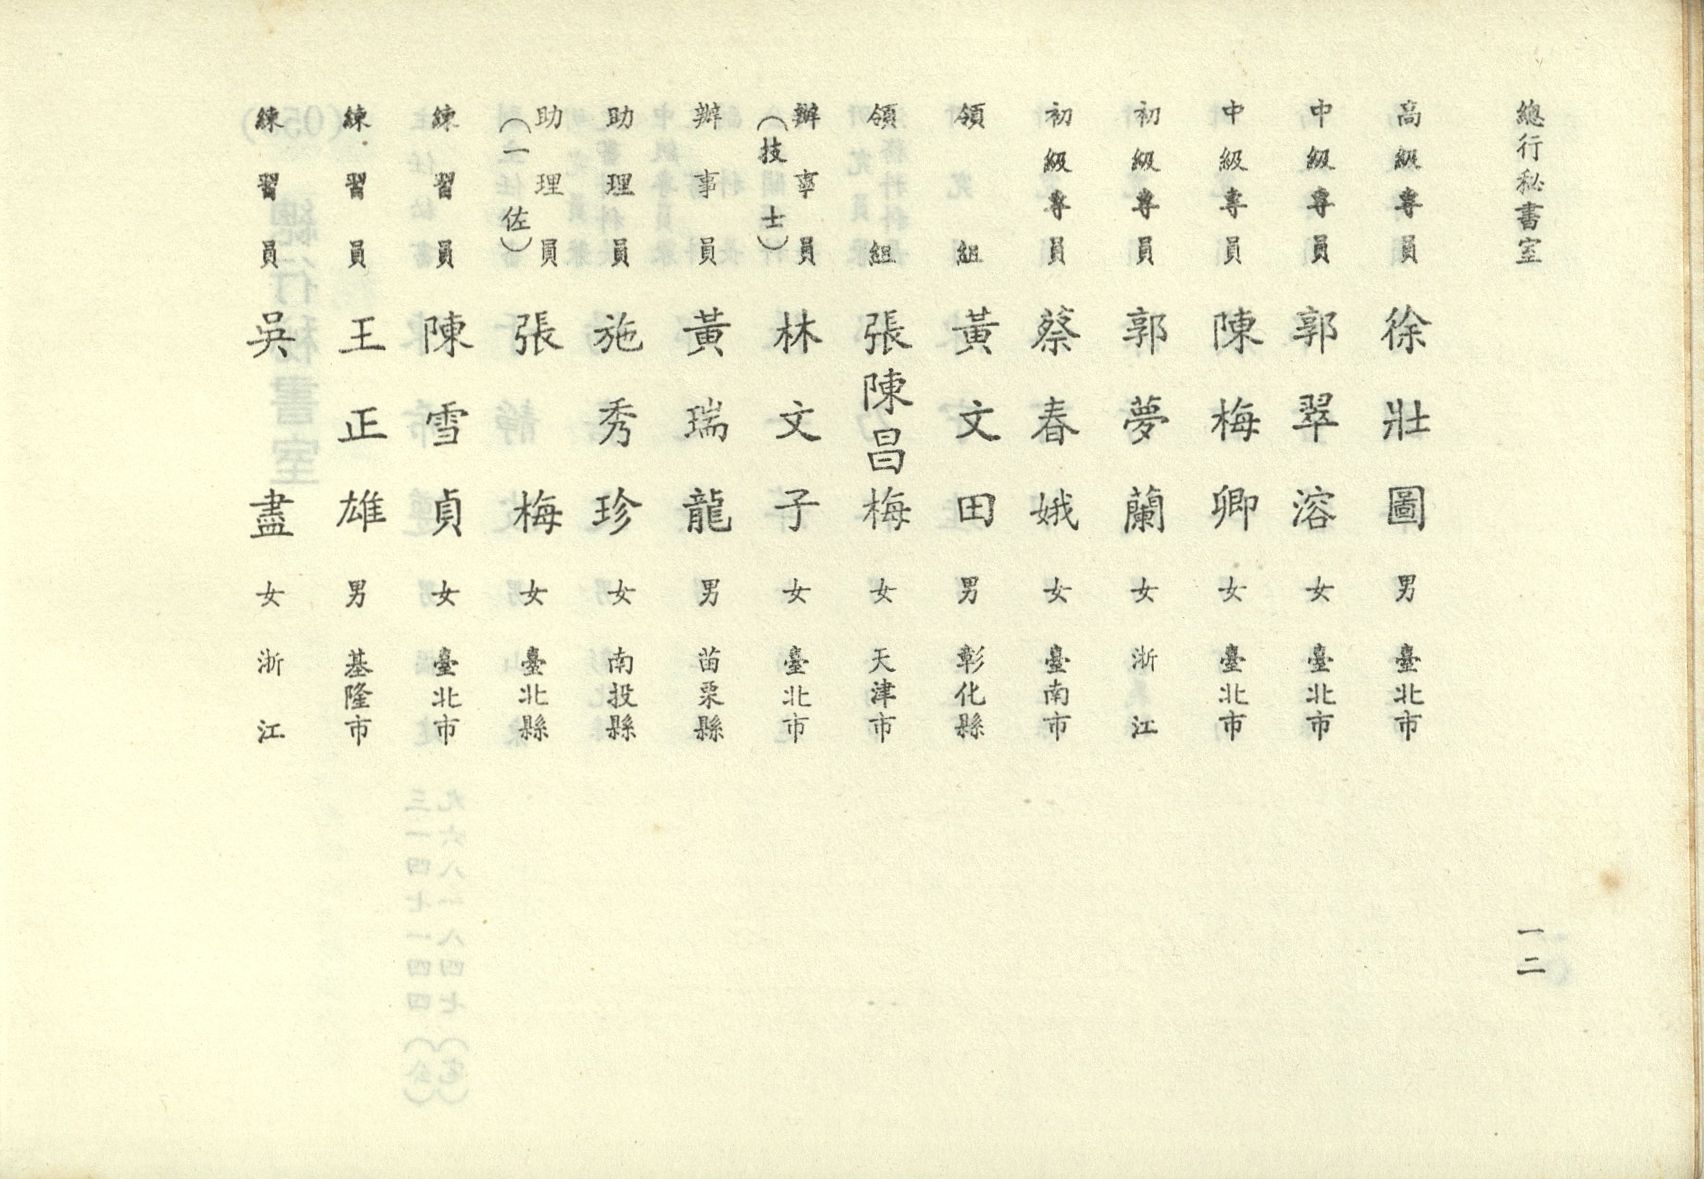 總行秘書室 一二
高級專員 徐壯圖 男 臺北市
中級專員 郭翠溶 女 臺北市
中級專員 陳梅卿 女 臺北市
初級專員 郭夢蘭 女 浙江
初級專員 蔡春娥 女 臺南市
領組 黃文田 男 彰化縣
領組 張陳昌梅 女 天津市
辦事員(技士) 林文子 女 臺北市
辦事員 黃瑞龍 男 苗栗縣
助理員 施秀珍 女 南投縣
助理員(一佐) 張梅 女 臺北縣
練習員 陳雪貞 女 臺北市
練習員 王正雄 男 基隆市
練習員 吳盡 女 浙江